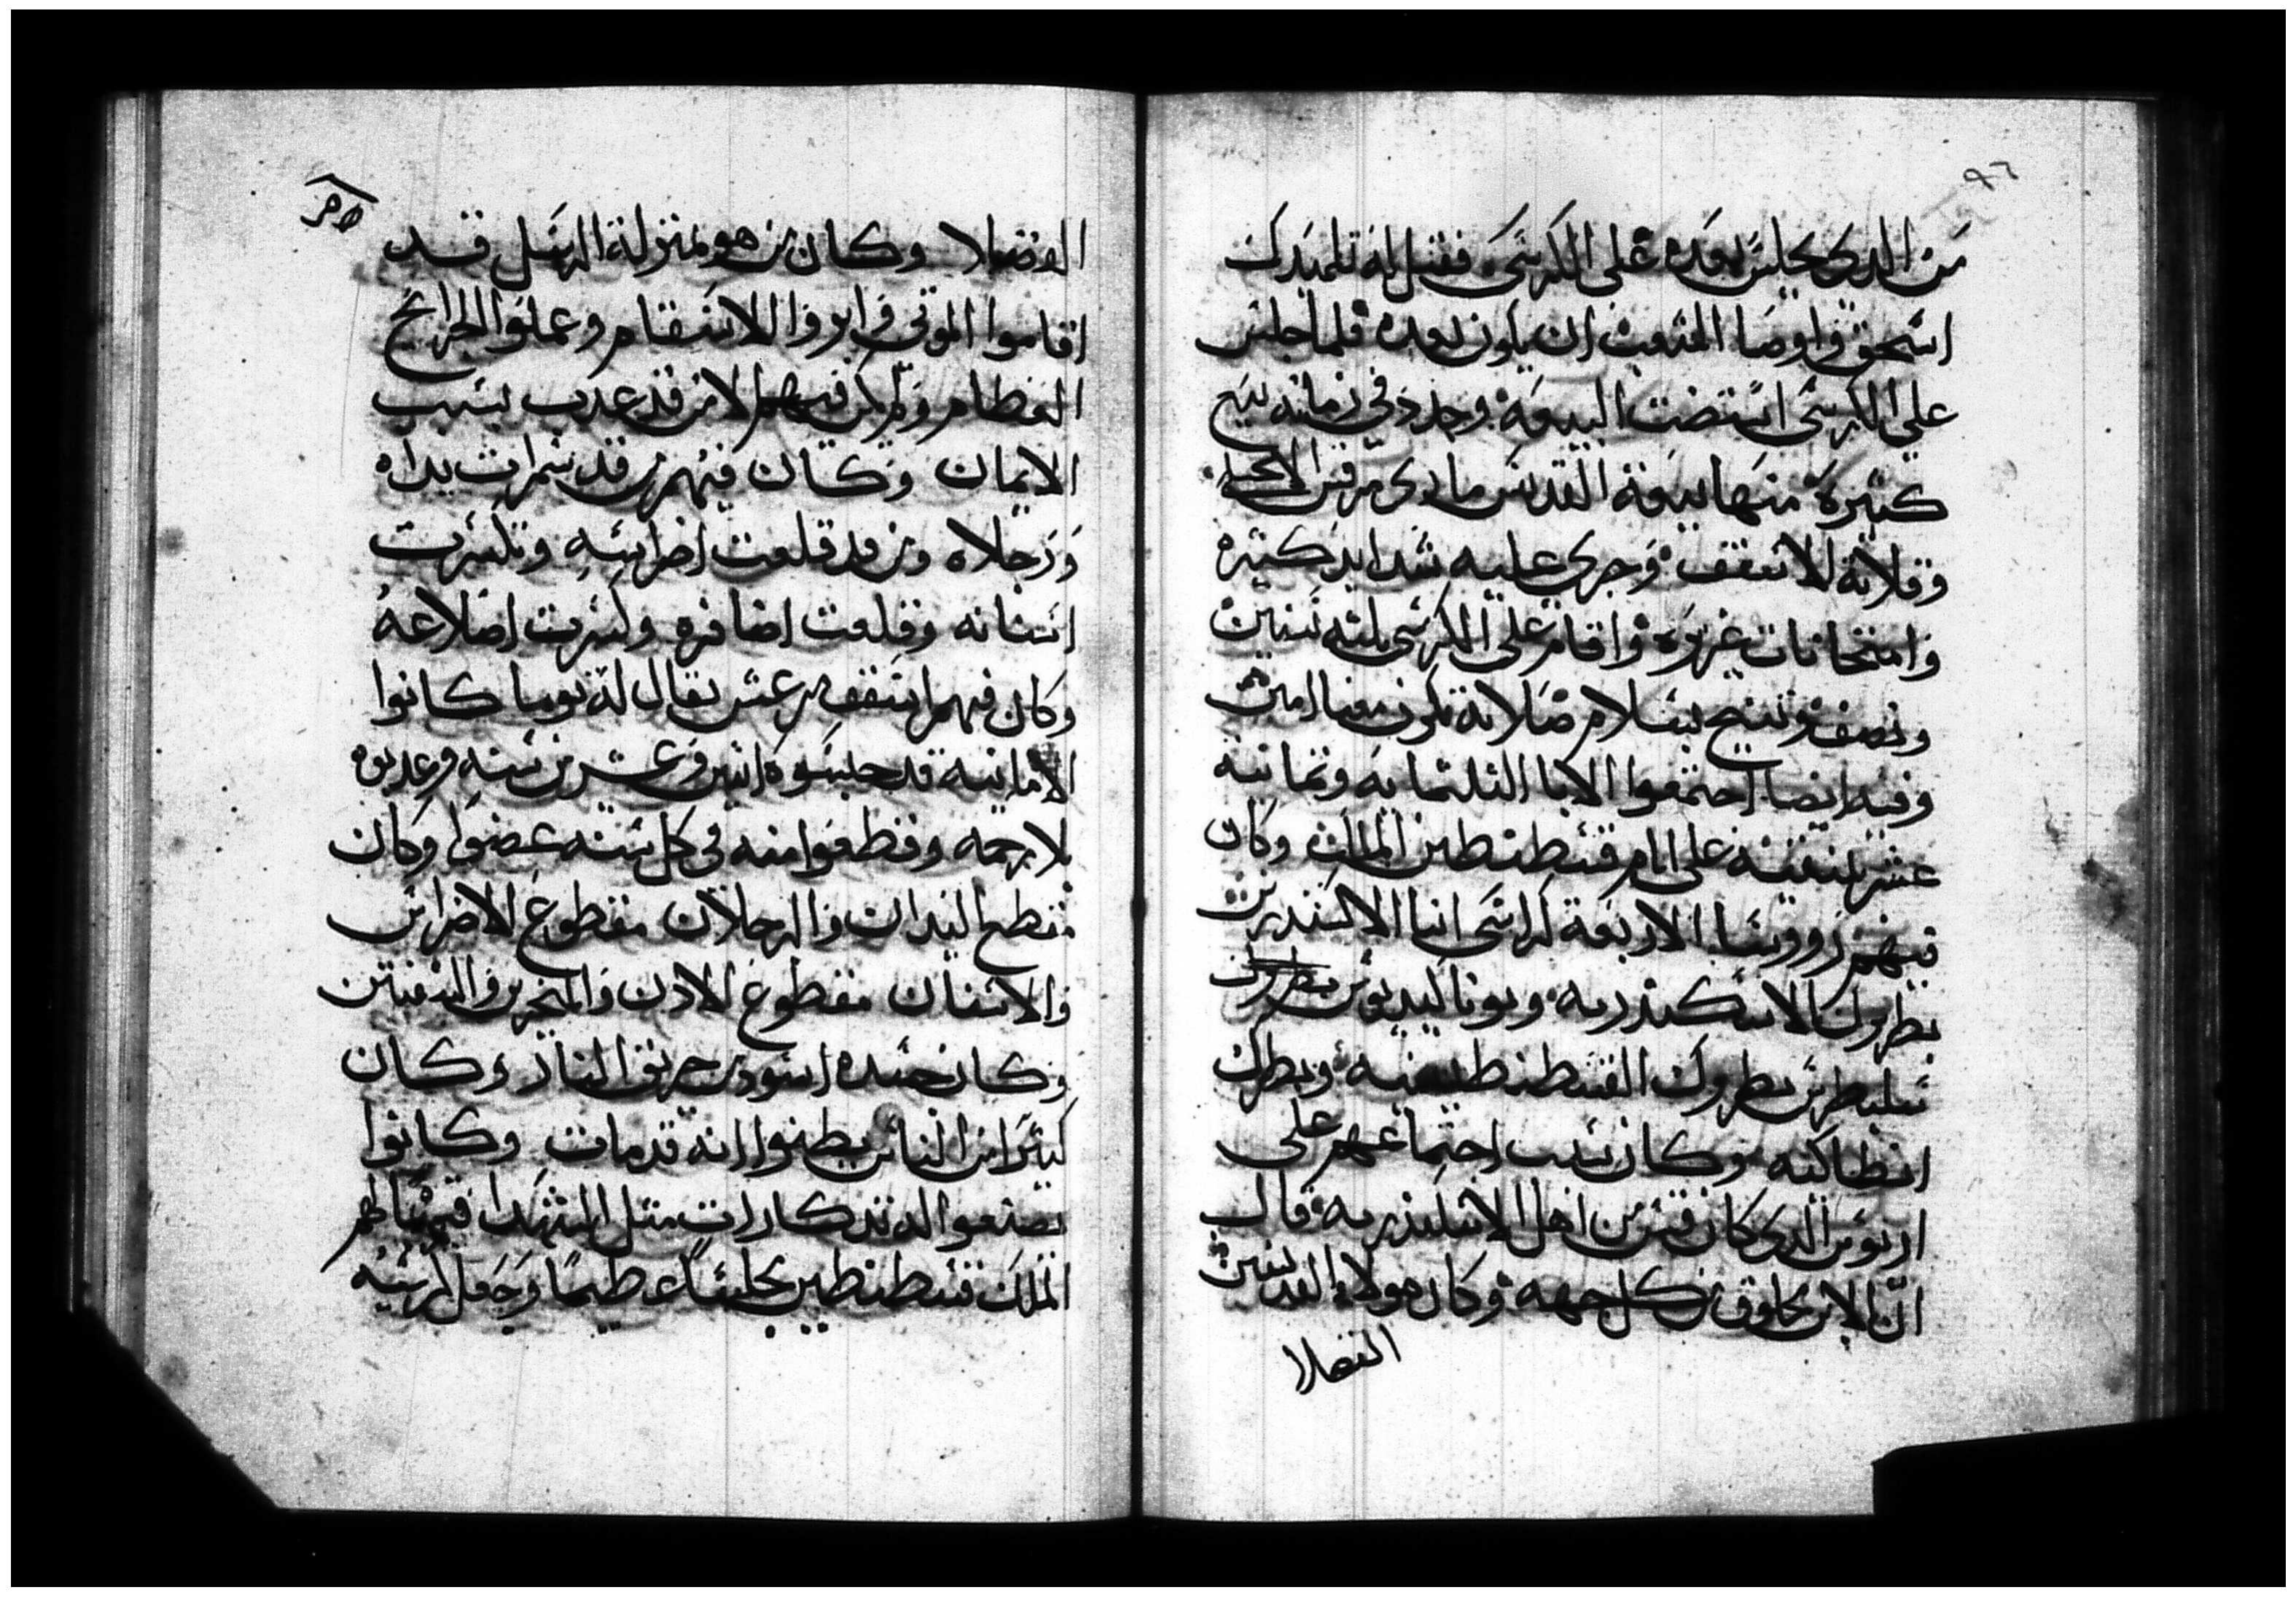 ٩٦
من الدى يجلس بعده على الكرسى فقيل له تلميدك
اسحق واوصا الشعب ان يكون بعده فلما جلس
على الكرسى استضت البيعة وجدد فى زمانه بيع
كتيرة منها بيعة القديس مارى مرقس الانجيلى
وقلاية للاسقف وجرى عليه شدايد كتيره
وامتحانات غزيره واقام على الكرسى تلته سنين
ونصف وتنيح بسلام صلاته تكون معنا امين
وفيه ايضا اجتمعوا الابا التلتمايه وتمانيه
عشر بنيقيه على ايام قسطنطين الملك وكان
فيهم رووسا الاربعة كراسى انبا الاكسندرس
بطروك الاسكندريه ويوناكنديوس بطروك
سلبطرس بطروك القسطنطينيه وبطرك
انطاكيه وكان سبب اجتماعهم على
اريوس الدى كان قس من اهل الاسكندريه قال
ان الابن مخلوق من كل جهه وكان هولاء القديسين
الفضلا
الفضلا وكان من هو بمنزلة الرسل قد
اقاموا الموتى وابروا الاسقام وعملوا الجرايح
العظام ولم يكن فيهم الا من قد عدب بسبب
الايمان وكان فيهم من قد سمرت يداه
ورجلاه ومن قد قلعت اضراسه وتكسرت
اسنانه وقلعت اضافره وكسرت اضلاعه
وكان فيهم اسقف مرعش يقال له توما كانوا
الامانيه قد حبسوه اتنين وعشرين سنه وعدبوه
بلا رحمه وقطعوا منه فى كل سنه عضوا وكان
مقطع اليدان والرجلان مقطوع الاضراس
والاسنان مقطوع الادن والمنخرين والشفتين
وكان جسده اسود من حريق النار وكان
كتيرا من الناس يظنوا انه قد مات وكانوا
يصنعوا له تدكارات متل الشهدا فهيا لهم
الملك قسطنطين مجلسا عظيما وجعل كرسيه